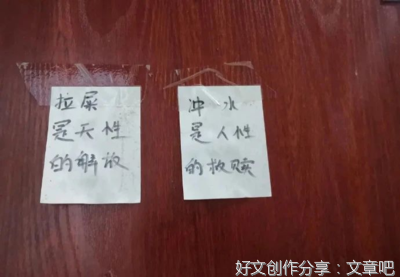 拉屎
是天性
的解放
冲水
是人性
的救赎
好文创作分享：文章吧